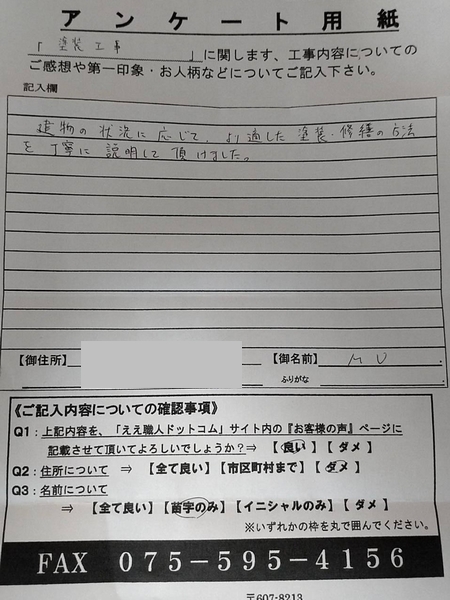 アンケート用紙
「 塗装工事 」に関します、工事内容についての
ご感想や第一印象・お人柄などについてご記入下さい。
記入欄
建物の状況に応じて、より適した塗装・修繕の方法
を丁寧に説明して頂けました。
【御住所】
【御名前】 M U
ふりがな
《ご記入内容についての確認事項》
Q1：上記内容を、「ええ職人ドットコム」サイト内の『お客様の声』ページに
記載させて頂いてよろしいでしょうか？⇒ 【良い】【ダメ】
Q2：住所について ⇒ 【全て良い】【市区町村まで】【ダメ】
Q3：名前について
⇒ 【全て良い】【苗字のみ】【イニシャルのみ】【ダメ】
※いずれかの枠を丸で囲んでください。
FAX 075-595-4156
〒607-8213